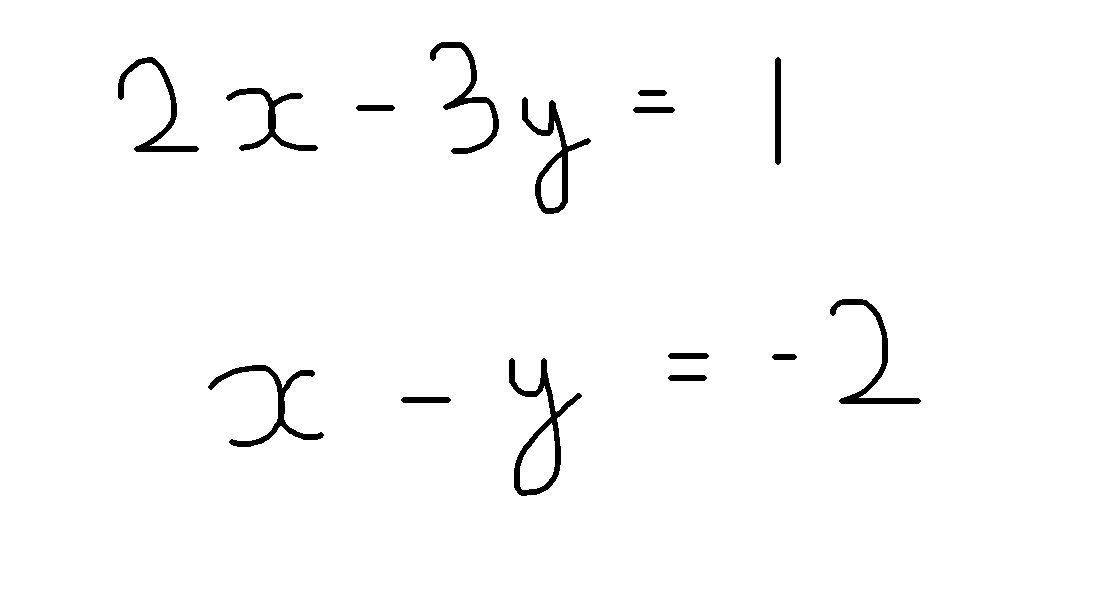 2x - 3y = 1
x - y = -2